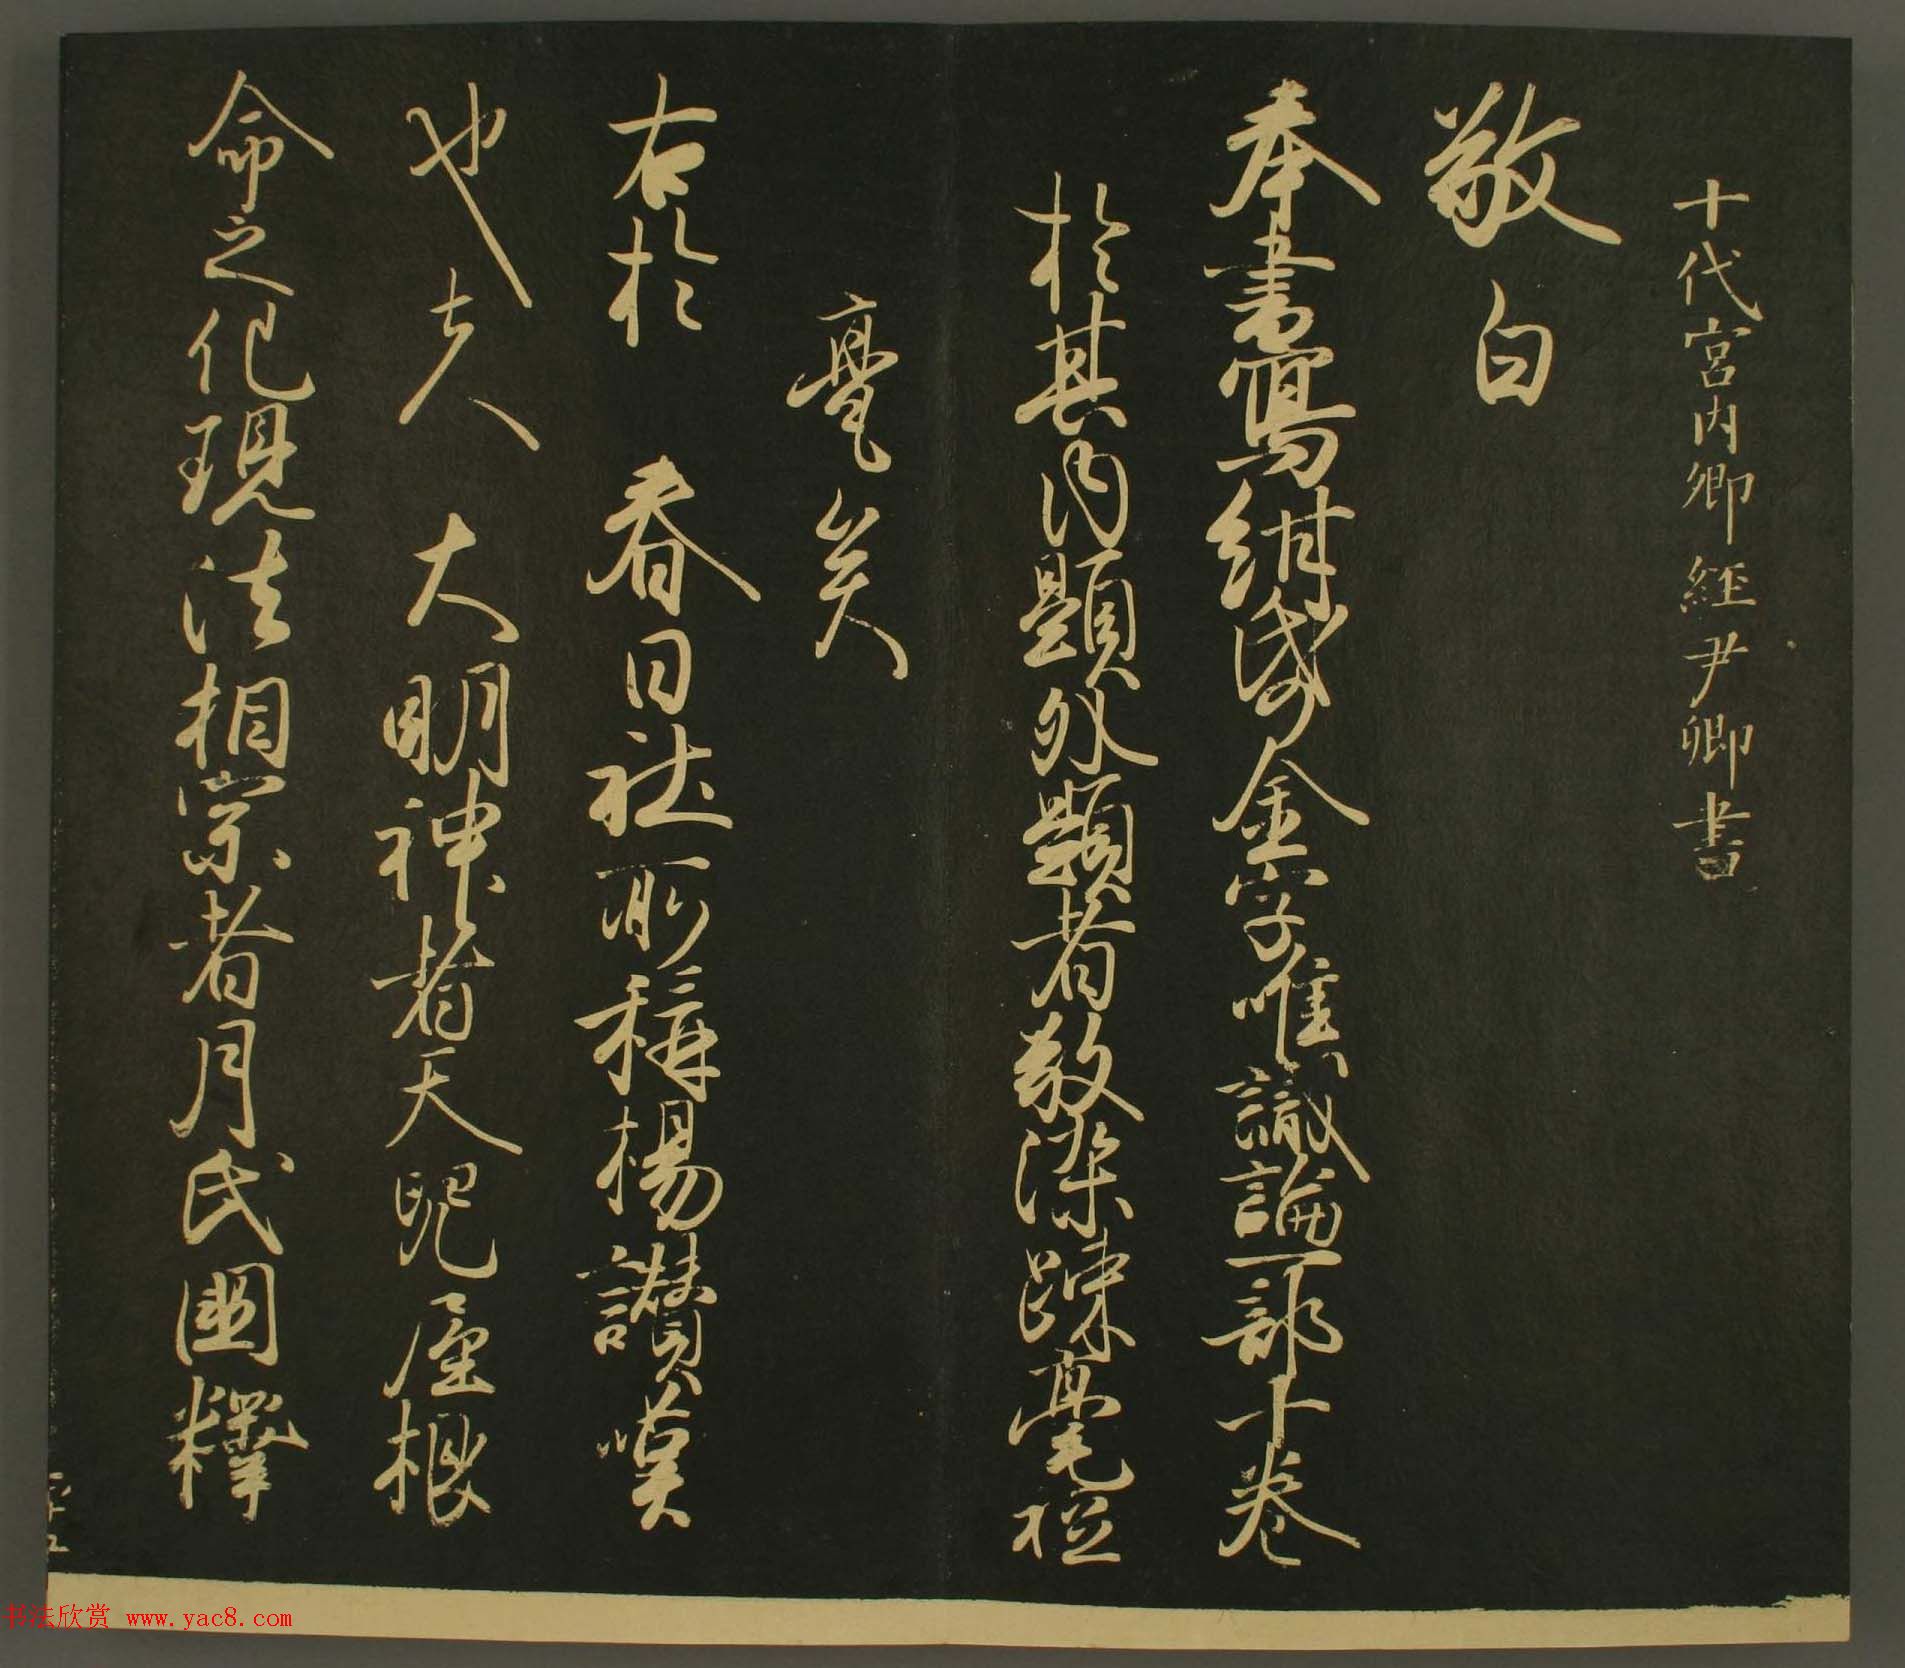 十代宮内卿経尹卿書
敬白
奉書寫紺紙金字唯識論一部十卷
於其内題外題者敬染疎毫
矣
右於 春日社所稱揚讃嘆
也夫 大明神者天児屋根
命之化現法相宗者月氏國釋
书法欣赏 www.yac8.com